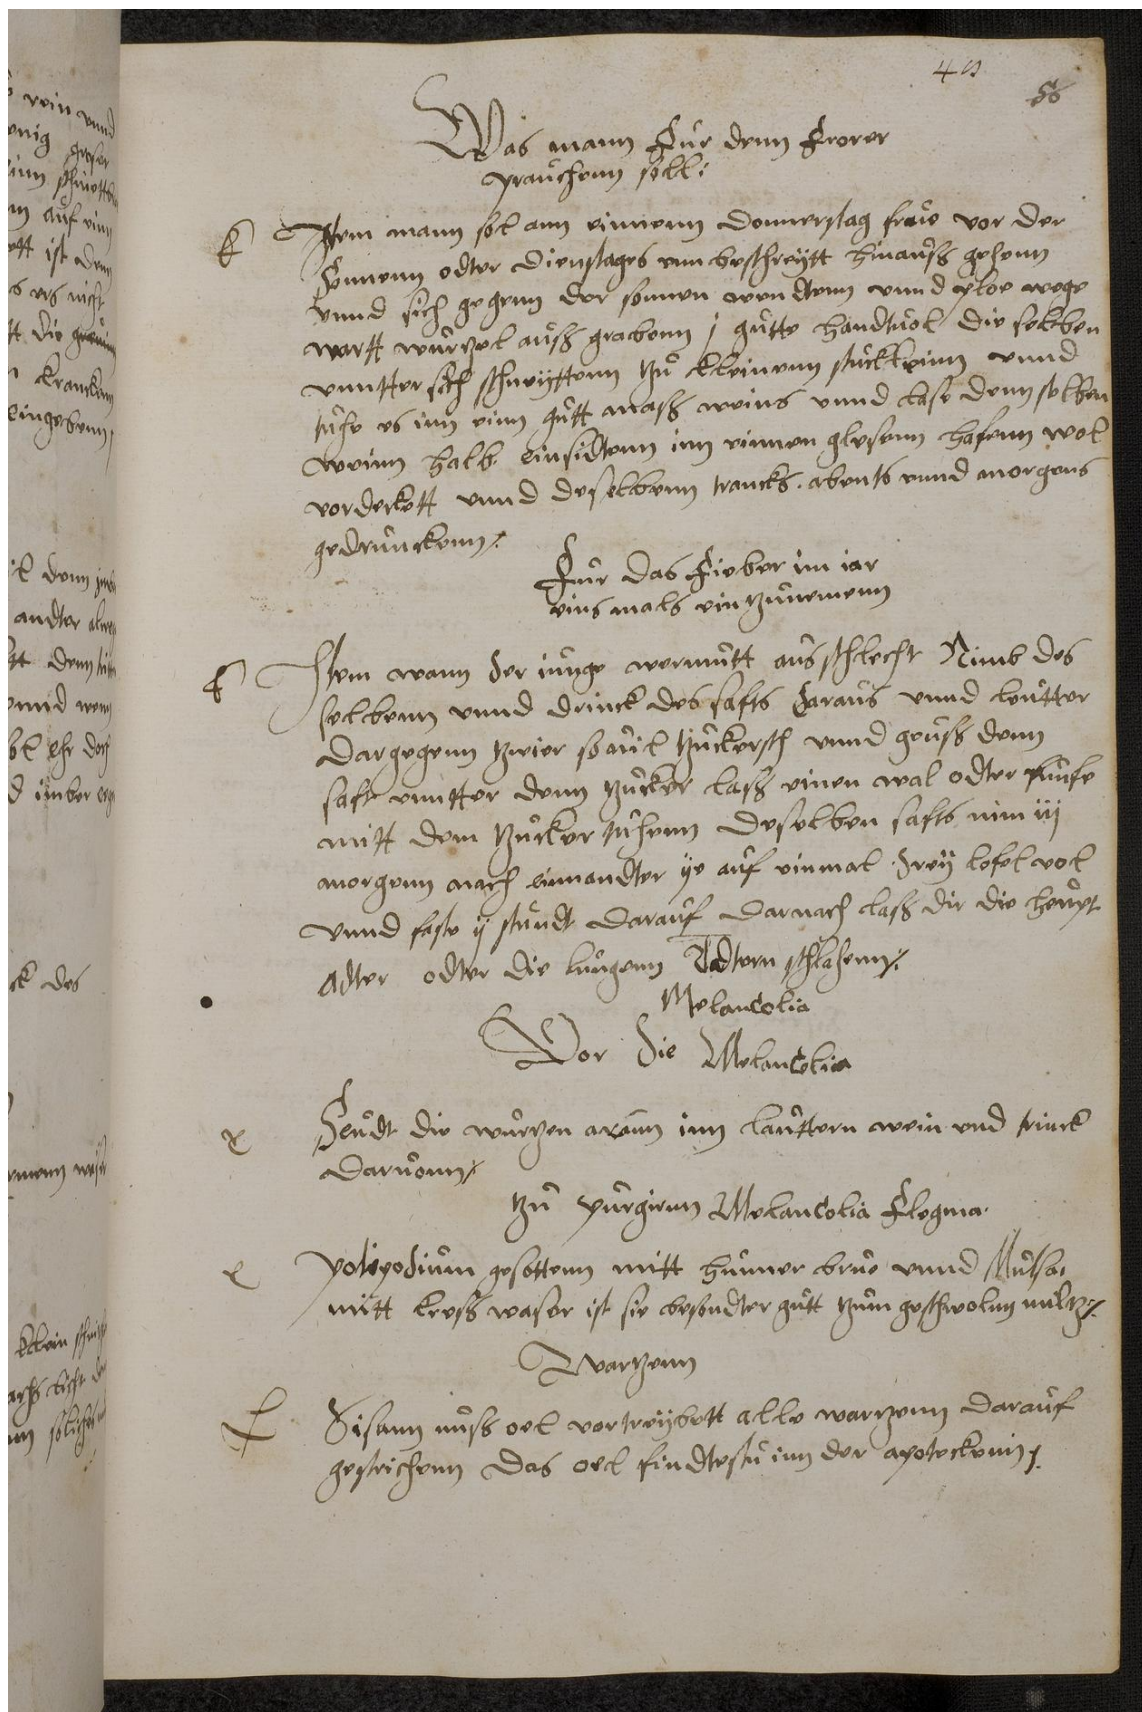 Was mann für denn frorer
prauchenn soll:
Item mann sol ann einnenn donnerstag frue vor der
Sonnenn odter dienstages vnnbeschreÿtt hinauß gehenn
vnnd sich gegenn der sonnen wendtenn vnnd ploe wege
wartt wurtzel auß grabenn j gutte handtuol die selben
vnntter sich schneÿttenn tzu kleinenn stuckleinn vnnd
tuhe es inn einn gutt maß weins vnnd lase denn selben
weinn halb einsidtenn inn einnen glesenn hafenn wol
vordeckett vnnd deselbenn trancks abents vnnd morgens
gedrunckenn
Für das fieber im iar
eins mals eintzunemenn
Item wann der iunge wermutt ausschlecht Nimb des
selbenn vnnd drinck des safts daraus vnnd leutter
dargegenn tzwier souil tzuckersch vnnd geuß denn
saft vnntter denn tzucker laß einen wal odter funfe
mitt dem tzucker tuhenn deselben safts nim iij
morgenn nach einnandter ÿe auf einmal dreÿ lofel vol
vnnd faste ij stundt darauf darnach laß dir die heupt
Adter odter die lungenn Adtern schlahenn
Melancolia
Vor die Melancolia
Seudt die wurtzen aronn inn lauttern wein vnd trinck
daruonn
tzu purgirnn Melancolia flegma
polipodium gesottenn mitt hunner brue vnnd Mulsa
mitt kreß waser ist sie besondter gutt tzum geschwolnn miltz
Wartzenn
nuß oel vertreÿbett alle wartzenn darauf
gestrichenn das oel findtestu inn der apoteckenn